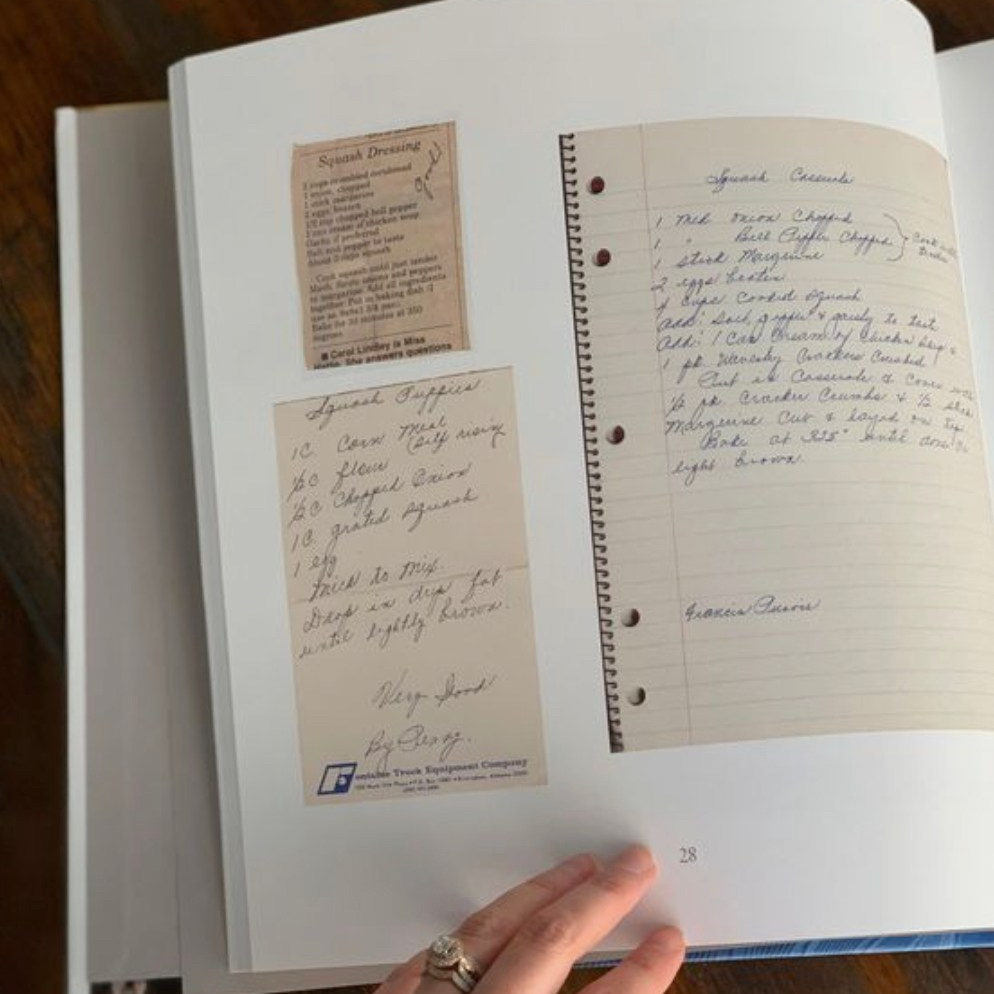 Squash Dressing
Good
2 cups crumbled cornbread
1 onion, chopped
1 stick margarine
2 eggs, beaten
1/2 cup chopped bell pepper
1 can cream of chicken soup
Garlic if preferred
Salt and pepper to taste
About 2 cups squash
Cook squash until just tender
Mash. Saute onions and peppers
in margarine. Add all ingredients
together. Put in baking dish (I
use an
Bake for 35 minutes at 350
degrees.
■ Carol Lindley is Miss
She answers questions
Squash Puppies
1C Corn Meal
½C flour (Self rising
½C Chopped Onion
1C. grated squash
1 egg
Mick to Mix.
Drop in deep fat
until lightly brown.
Very Good
By
Truck Equipment Company
Squash Casserole
1 Med Onion Chopped
1 " Bell Pepper Chopped } Cook until
tender
1 stick Margerine
2 eggs beaten
cups Cooked Squash
Add: Salt, pepper & to tast
Add: 1 Can Cream of Chicken Soup &
1 pk. Waverly Crackers Crushed
Put in Casserole & Cover with
½ pk. Cracker Crumbs & ½ stick
Margerine Cut & layed on top
Bake at 325° until done &
light brown.
Francis
28